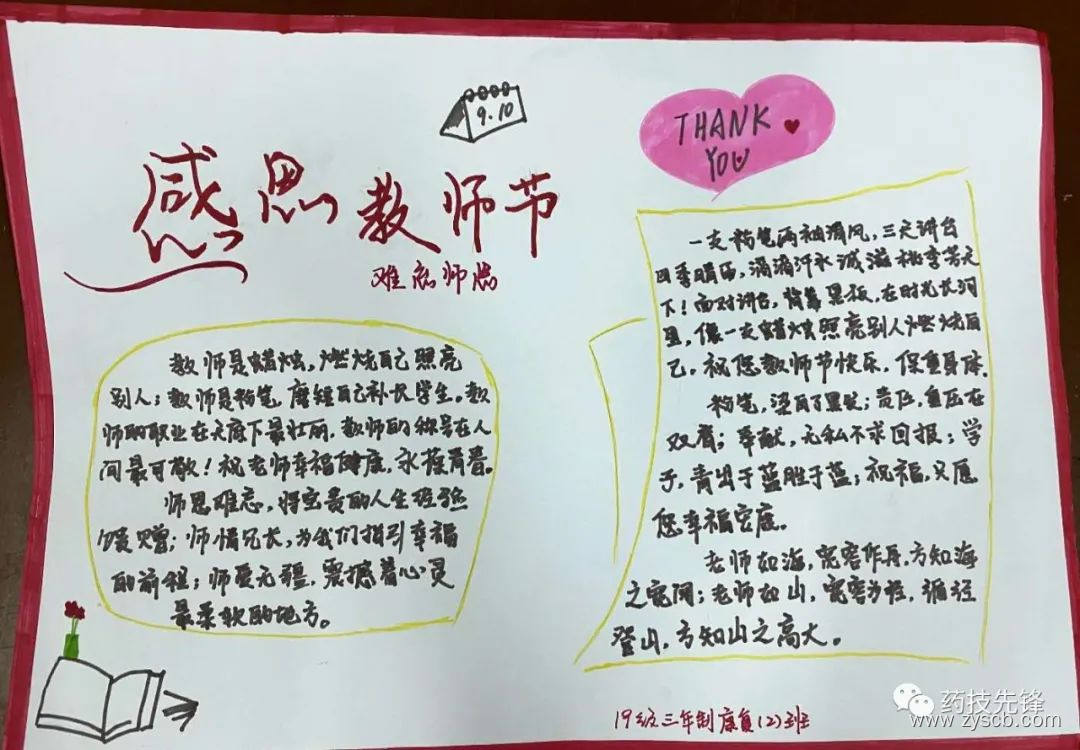 9.10
THANK
YOU
感恩教师节
难忘师恩
教师是蜡烛，燃烧自己照亮
别人；教师是粉笔，磨短自己补长学生。教
师的职业在天底下最壮丽，教师的称号在人
间最可敬！祝老师幸福健康，永葆青春。
师恩难忘，将宝贵的人生经验
馈赠；师情冗长，为我们指引幸福
的前程；师爱无疆，震撼着心灵
最柔软的地方。
一支粉笔两袖清风，三尺讲台
四季晴雨，滴滴汗水诚滋桃李芳天
下！面对讲台，背靠黑板，在时光长河
里，像一支蜡烛照亮别人燃烧自
己，祝您教师节快乐，保重身体。
粉笔，染白了黑发；责任，重压在
双肩；奉献，无私不求回报；学
子，青出于蓝胜于蓝；祝福，只愿
您幸福安康。
老师如海，宽容作舟，方知海
之宽阔；老师如山，宽容为径，循径
登山，方知山之高大。
19级三年制康复(2)班
药技先锋
www.zyscb.com